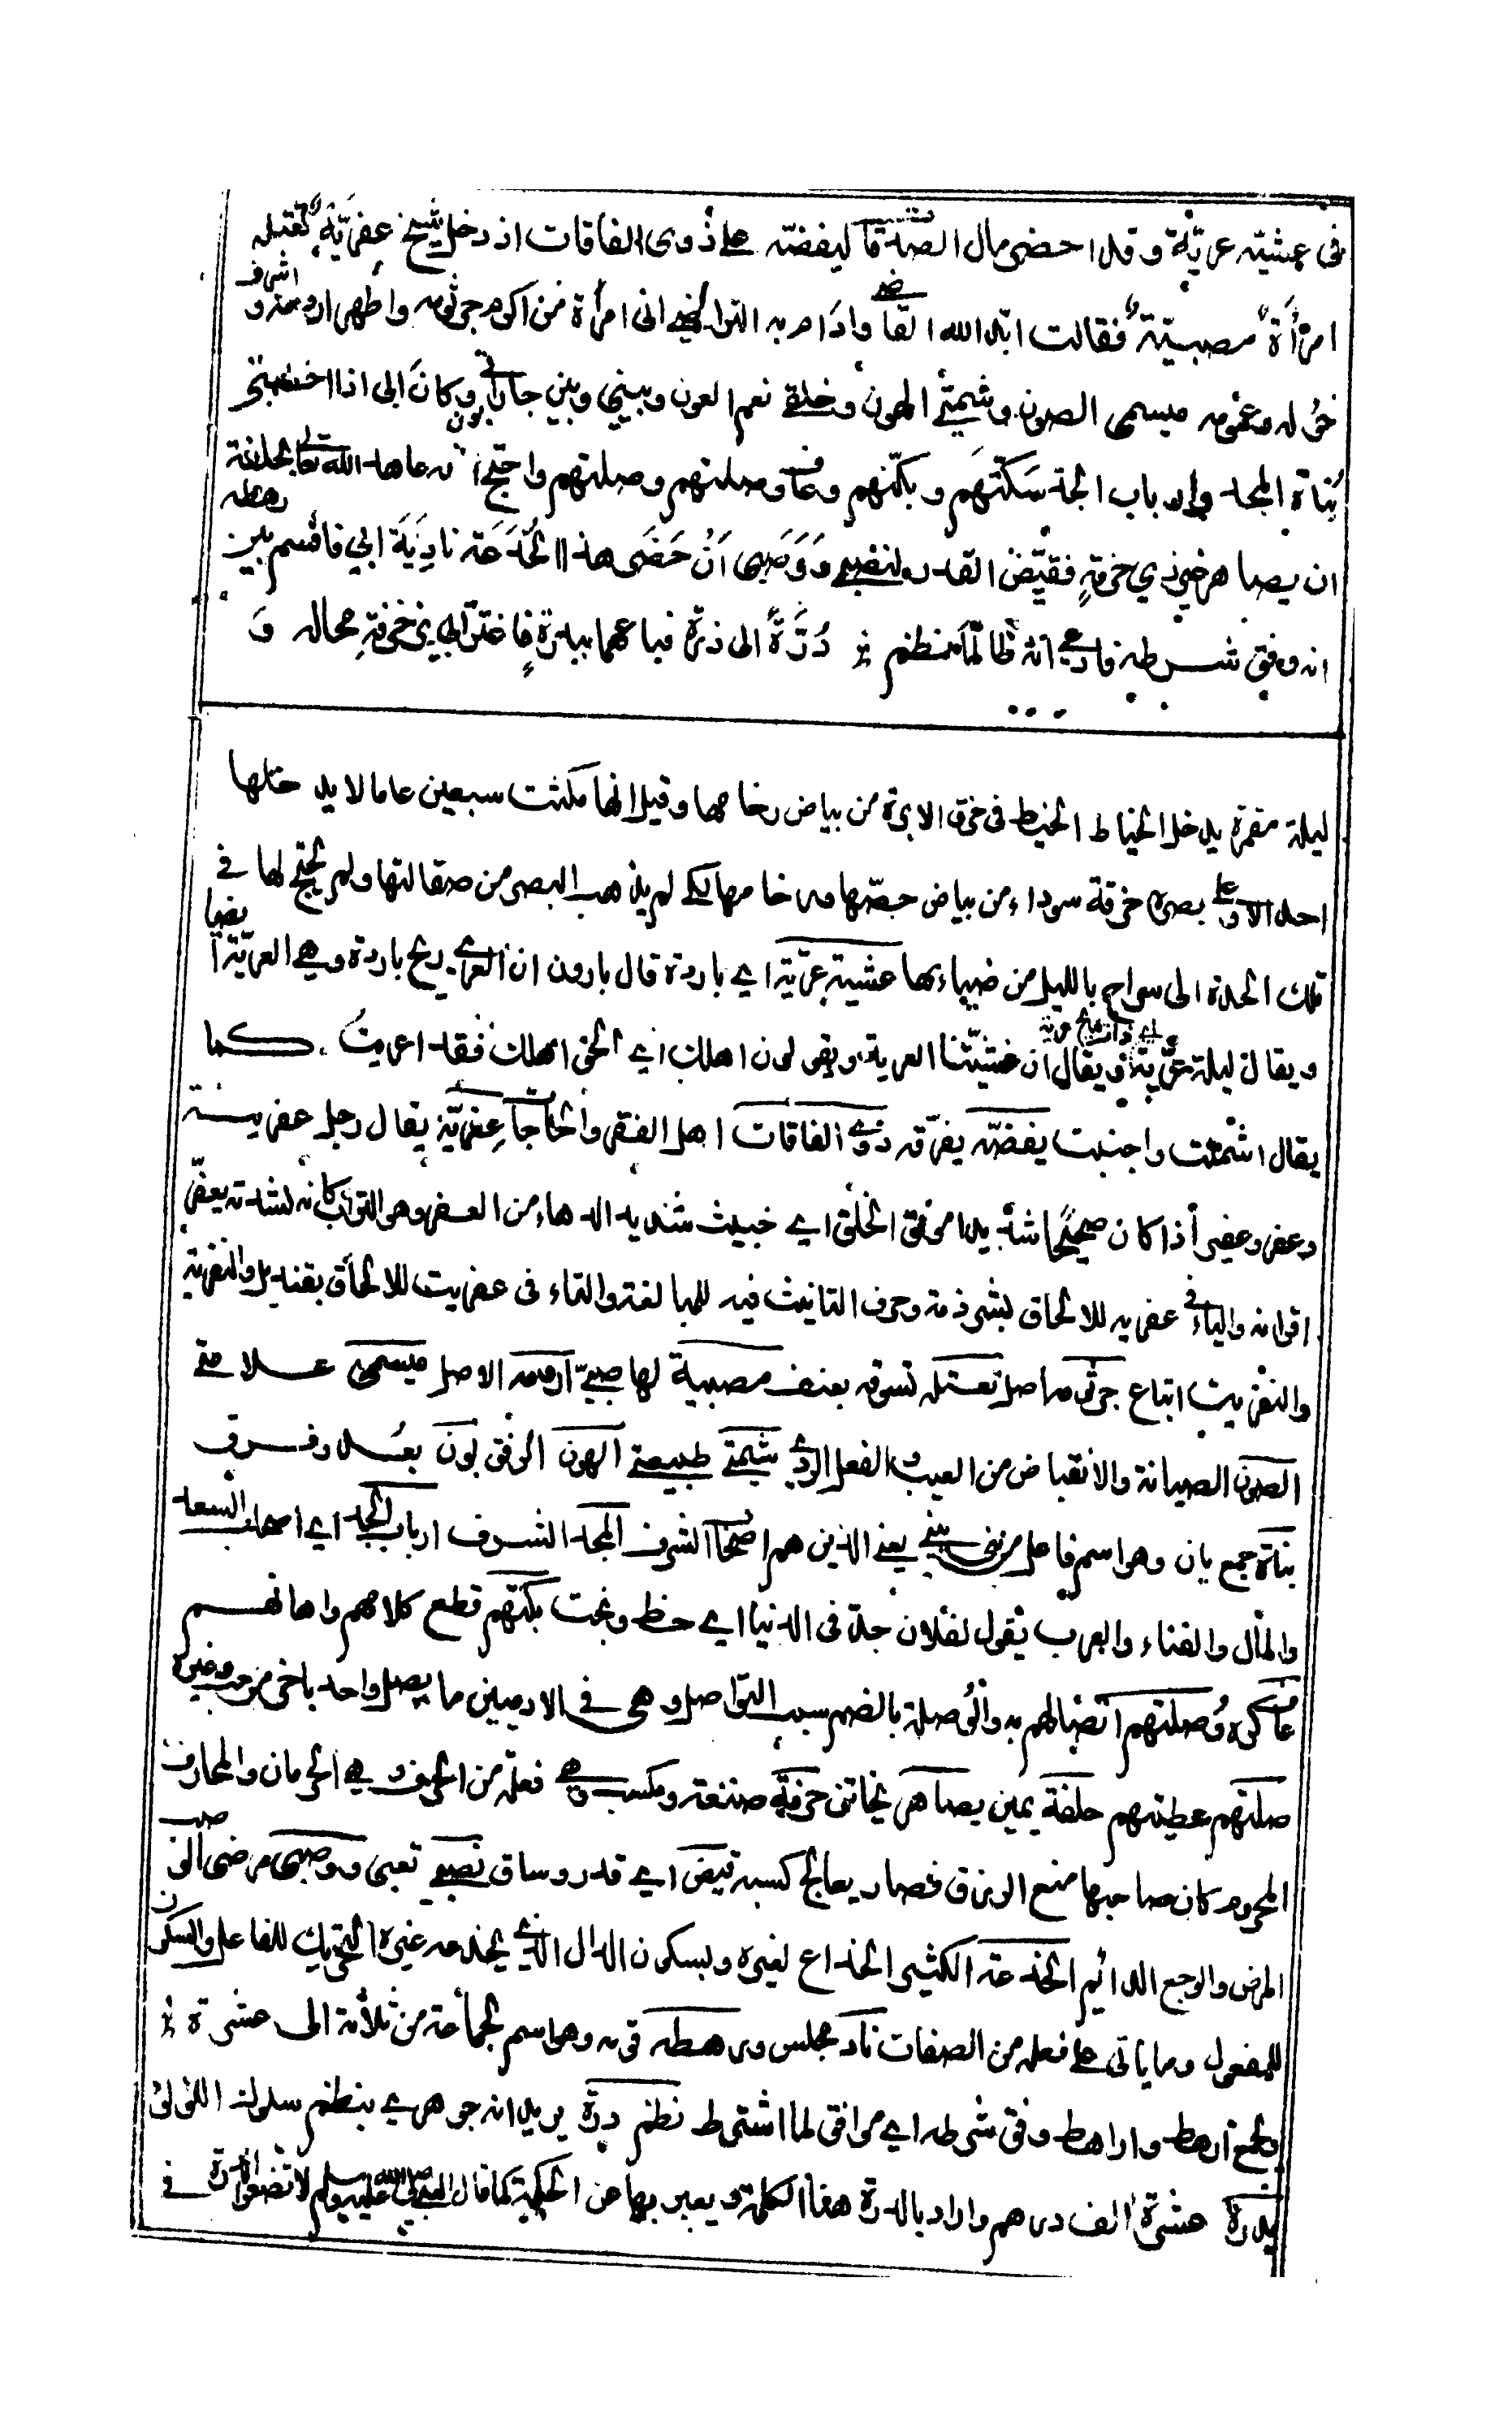 في عشية عرية وقد احضر مال الصدقات ليفضه على ذوي الفاقات اذ دخل شيخ عفرية تعتله
امرأة مصبية فقالت ايد الله القاضي وادام به التراضي اني امرأة من اكرم جرثومة واطهر ارومة و اشرف
خؤولة وعمومة ميسمي الصون وشيمتي الهون وخلقي نعم العون وبيني وبين جاراتي بون وكان ابي اذا خطبني
بناة المجد وارباب الجد سكتهم وبكتهم وعاف وصلتهم وصلتهم واحتج بانه عاهد الله تعالى بحلفة
ان لا يصاهر غير ذي حرفة فقيض القدر لنصبي ووصبي ان حضر هذا الخدعة نادي ابي فاقسم بين رهطه
انه وفق شرطه فادعى انه طالما نظم درة الى درة فباعهما ببدرة فاغتر ابي بزخرفة محاله و
ليلة مقمرة يدخل الخياط الخيط في خرق الابرة من بياض رخامها وقيل انها مكثت سبعين عاما لا يدخلها
احد الا وعلى بصره خرقة سوداء من بياض جصها ورخامها لكي لم يذهب البصر من صقالتها ولم يحتج لها في
تلك المدة الى سراج بالليل من ضيائها عشية عرية اي باردة قال بارون ان العرى ريح باردة وهي العرية ايضا
ويقال ليلة عرية اي ذات ريح عرية ويقال ان عشيتنا العرية ويقولون اهلك اي الحق اهلك فقد اعريت كما
يقال اشملت واجنبت يفضه يفرقه ذوي الفاقات اهل الفقر والحاجات عفرية يقال رجل عفريت
وعفر وعفير اذا كان صحيحا شديدا موثق الخلق اي خبيث شديد الدهاء من العفر وهو التراب كانه لشدته يعفر
اقرانه والياء في عفرية للالحاق بشرذمة وحرف التانيث فيه للمبالغة والتاء في عفريت للالحاق بقنديل والنفرية
والنفريت اتباع جرثومة اصل تعتله تسوقه بعنف مصبية لها صبي ارومة الاصل ميسمي علامتي
الصون الصيانة والانقباض من العيب والفعل الردي شيمتي طبيعتي الهون الرفق بون بعد وفرق
بناة جمع بان وهو اسم فاعل من بنى يبني يعني الذين هم اصحاب الشرف المجد الشرف ارباب الجد اي اصحاب السعد
والمال والغناء والعرب تقول لفلان جد في الدنيا اي حظ وبخت بكتهم قطع كلامهم واهانهم
عاف كره وصلتهم اتصالهم به والوصلة بالضم سبب التواصل وهي في الادميين ما يصل واحد باخر من حب وغيره
صلتهم عطيتهم حلفة يمين يصاهر يخاتن حرفة صنعة ومكسب وهي فعلة من الحرف وهي الحرمان والمحارف
المحروم كان صاحبها منع الرزق فصار يعالج كسبه قيض اي قدر وساق نصبي تعبي ووصبي مرضي الوصب
المرض والوجع الدائم الخدعة الكثير الخداع لغيره وبسكون الدال الذي يخدعه غيره التحريك للفاعل والسكون
للمفعول وما ياتي على فعلة من الصفات ناد مجلس ورهطه قومه وهو اسم لجماعة من ثلاثة الى عشرة
يجمع ارهط واراهط وفق شرطه اي موافق لما اشترط نظم درة يريد انه جوهري ينظم سلوك اللؤلؤ
بدرة عشرة الف درهم واراد بالدرة هذا الكلمة ويعبر بها عن الحكمة كما قال النبي صلى الله عليه وسلم لا تضعوا الدرة في